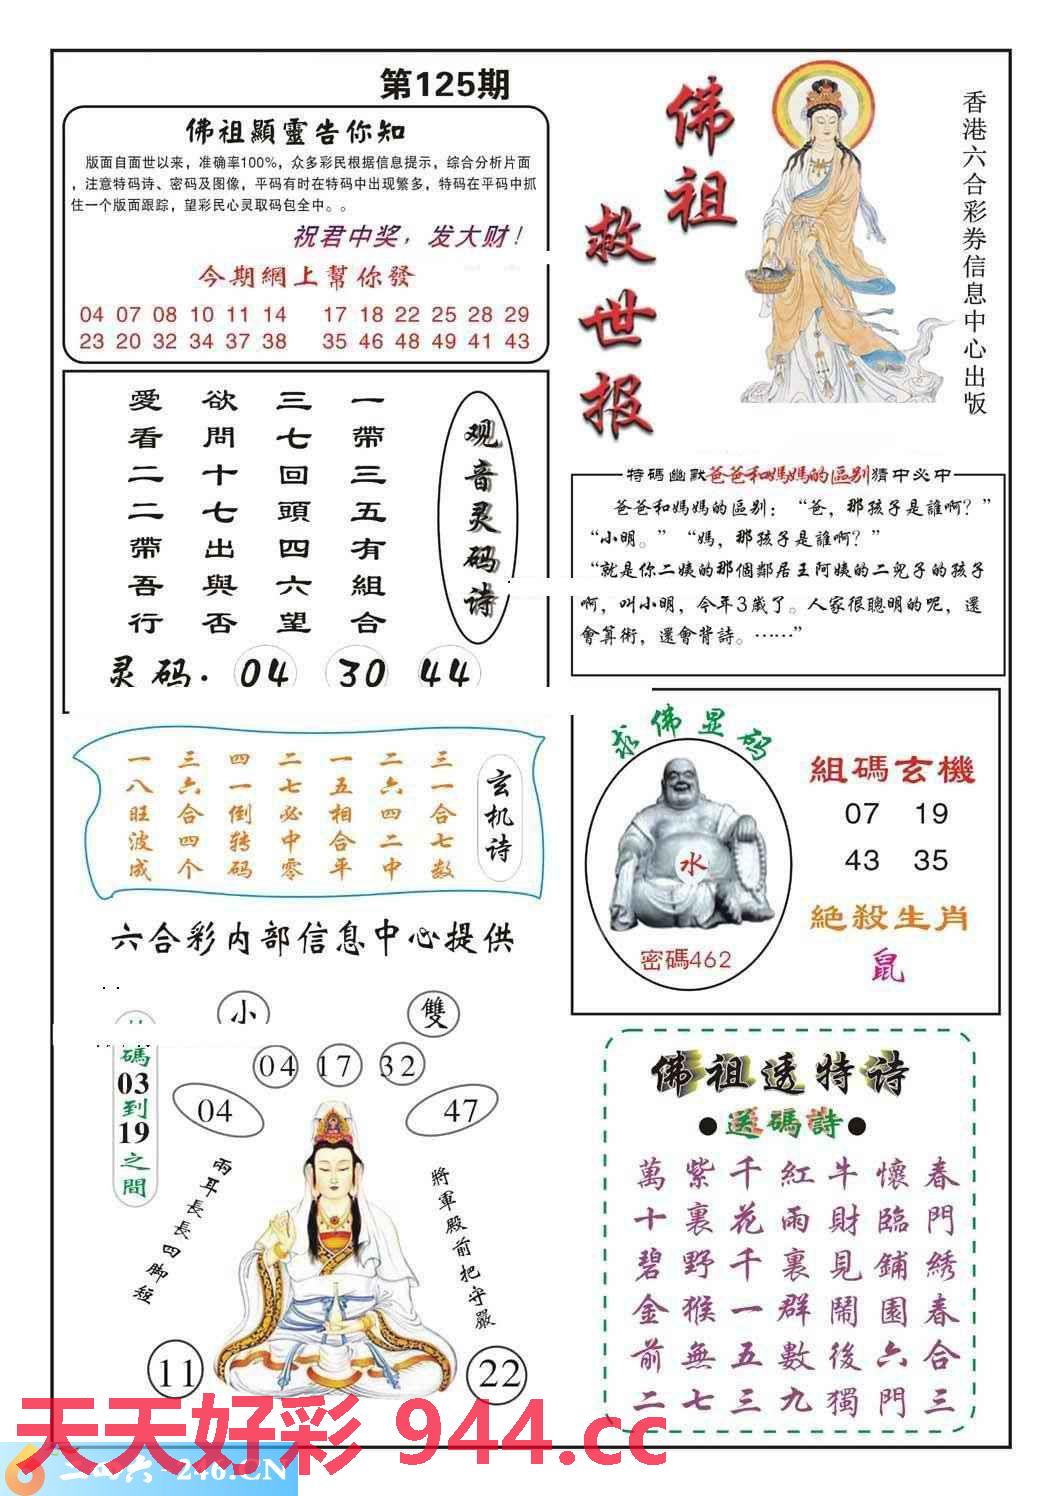 第125期
佛祖顯靈告你知
版面自面世以来，准确率100%，众多彩民根据信息提示，综合分析片面
，注意特码诗、密码及图像，平码有时在特码中出现繁多，特码在平码中抓
住一个版面跟踪，望彩民心灵取码包全中。。
祝君中奖，发大财！
今期網上幫你發
04 07 08 10 11 14 17 18 22 25 28 29
23 20 32 34 37 38 35 46 48 49 41 43
佛祖
救世报
香港六合彩券信息中心出版
观音灵码诗
一帶三五有組合
三七回頭四六望
欲問十七出與否
愛看二二帶吾行
灵码. 04 30 44
特碼幽默爸爸和媽媽的區别猜中必中
爸爸和媽媽的區别：“爸，那孩子是誰啊？”
“小明。”“媽，那孩子是誰啊？”
“就是你二姨的那個鄰居王阿姨的二兒子的孩子
啊，叫小明，今年3歲了。人家很聰明的呢，還
會算術，還會背詩。……”
玄机诗
三一合七数
二六四二中
一五相合平
二七必中零
四一倒转码
三六合四个
一八旺波成
六合彩内部信息中心提供
求佛显码
水
密碼462
組碼玄機
07 19
43 35
絕殺生肖
鼠
小
雙
04 17 32
04
47
碼03到19之間
兩耳長長四脚短
將軍殿前把守嚴
11
22
佛祖透特诗
●送碼詩●
春門綉春合三
懷臨鋪園六門
牛財見鬧後獨
紅雨裏群數九
千花千一五三
紫裏野猴無七
萬十碧金前二
天天好彩 944.cc
246.CN